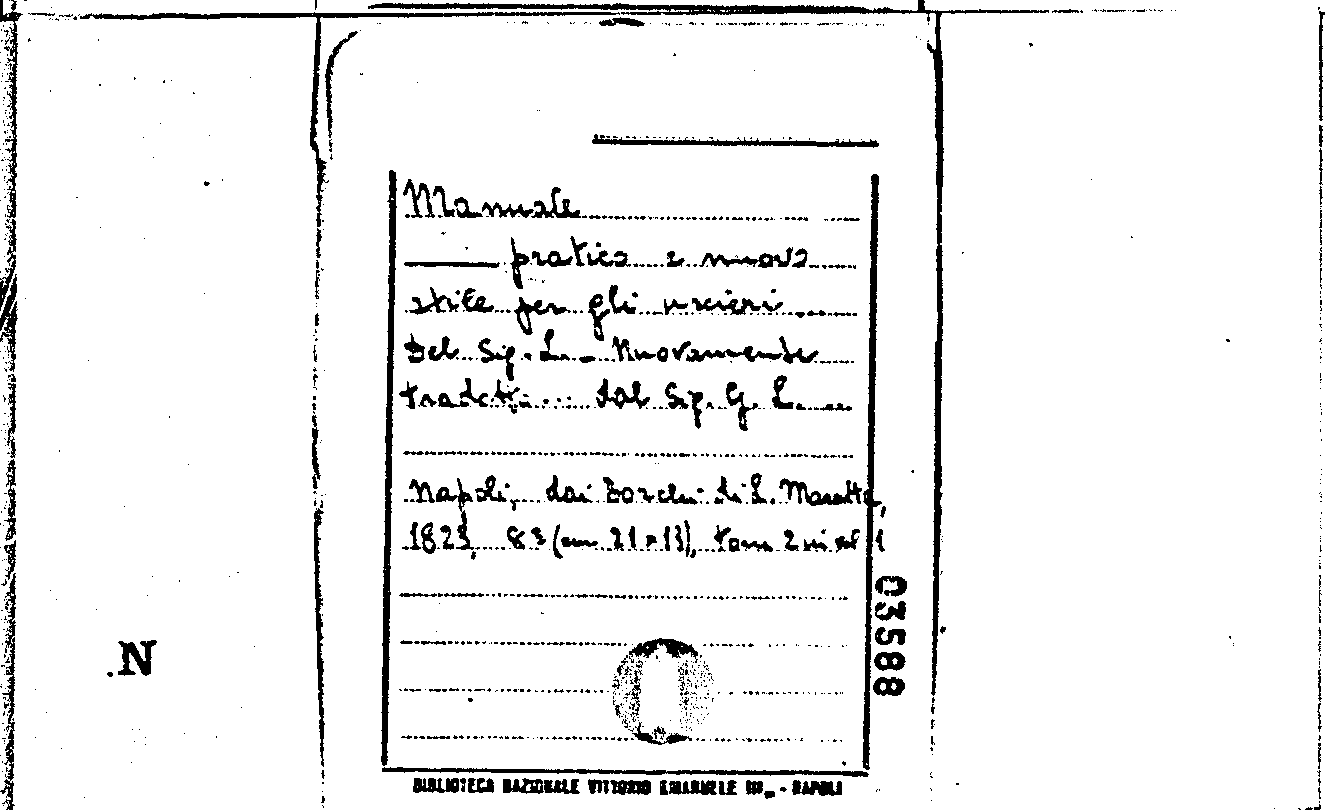 Manuale
pratico e nuovo
stile per gli uscieri ...
del Sig. L... Nuovamente
tradotto ... dal Sig. G. L....
Napoli, dai Torchi di L. Marotta,
1823, 8º (cm 21×13), tomi 2 in 1
03588
.N
BIBLIOTECA NAZIONALE VITTORIO EMANUELE III - NAPOLI